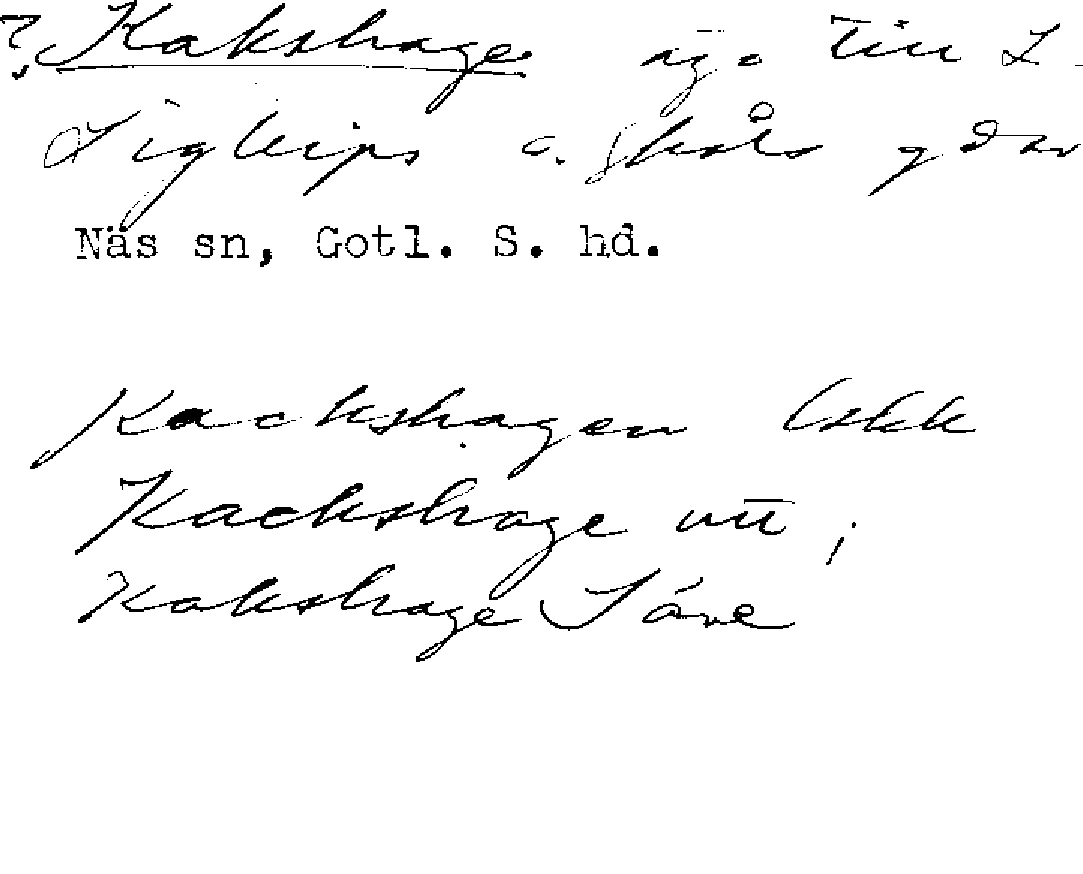 ? Kakshage äga till L.
Sigleips o. Skåls gdar
Näs sn, Gotl. S. hd.
Kackshagen
Kackshage utt ;
Kakshage Säve